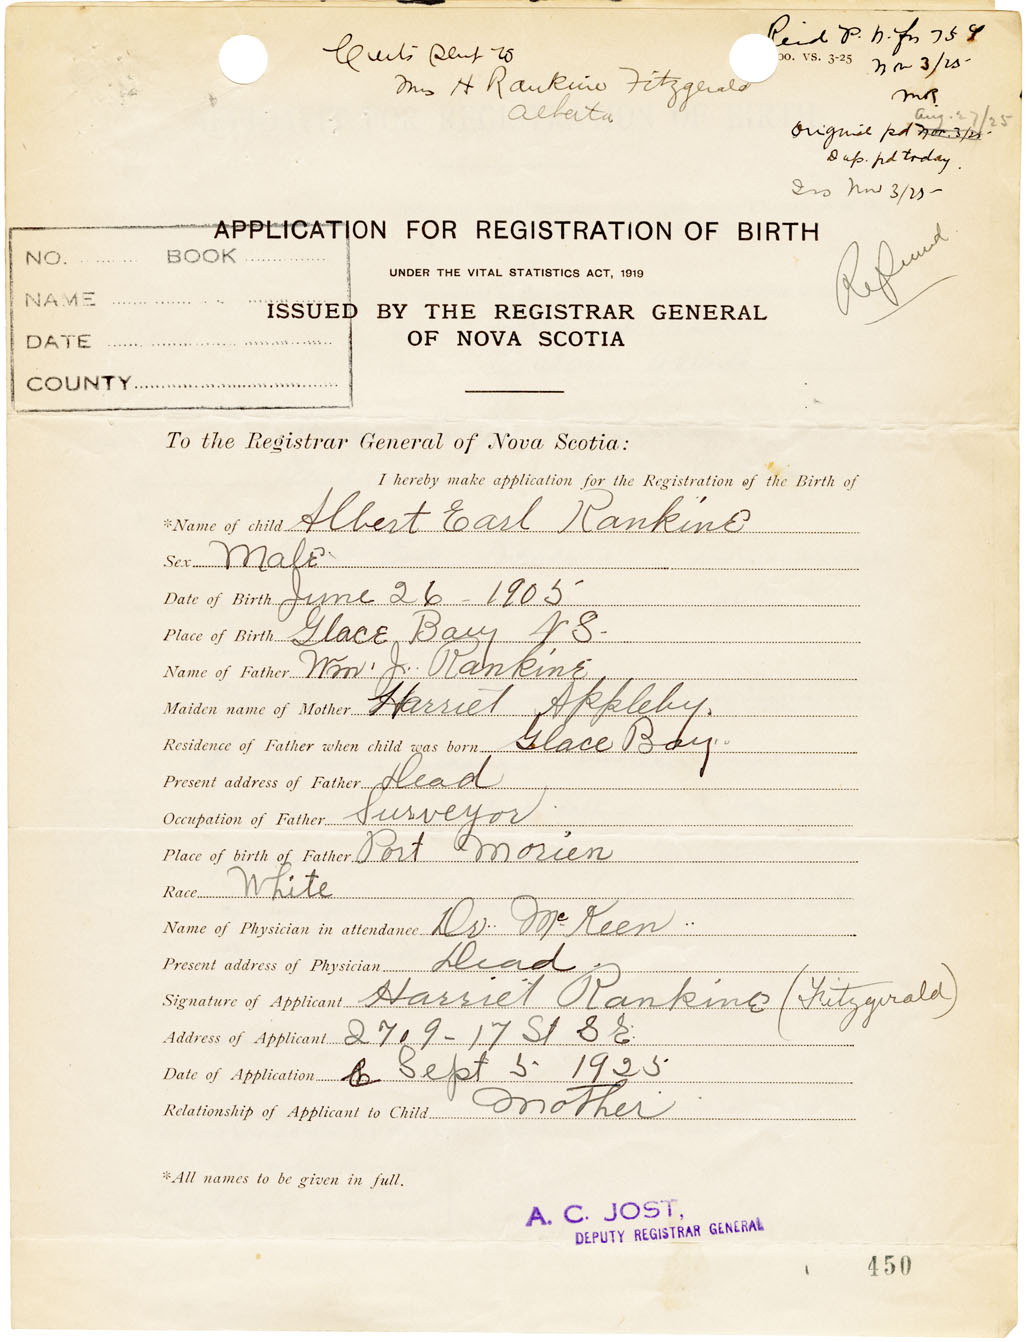 Certs sent to
Mrs H Rankine Fitzgerald
Alberta
Reid P. N. for 75¢
00. VS. 3-25
Nov 3/25-
MR
Aug. 27/25
Original pd Nov. 3/25-
Dup. pd today.
Nov 3/25-
Refund
APPLICATION FOR REGISTRATION OF BIRTH
UNDER THE VITAL STATISTICS ACT, 1919
ISSUED BY THE REGISTRAR GENERAL
OF NOVA SCOTIA
NO. BOOK
NAME
DATE
COUNTY
To the Registrar General of Nova Scotia:
I hereby make application for the Registration of the Birth of
*Name of child Albert Earl Rankine
Sex Male
Date of Birth June 26 - 1905
Place of Birth Glace Bay N S-
Name of Father Wm. J. Rankine
Maiden name of Mother Harriet Appleby.
Residence of Father when child was born Glace Bay
Present address of Father Dead
Occupation of Father Surveyor
Place of birth of Father Port Morien
Race White
Name of Physician in attendance Dr. McKeen
Present address of Physician Dead.
Signature of Applicant Harriet Rankine (Fitzgerald)
Address of Applicant 2709-17 St S E.
Date of Application Sept 5 1925
Relationship of Applicant to Child Mother
*All names to be given in full.
A. C. JOST,
DEPUTY REGISTRAR GENERAL
450